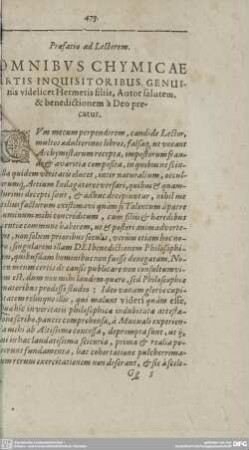 479.
Præfatio ad Lectorem.
OMNIBVS CHYMICAE
ARTIS INQUISITORIBUS, GENUI-
nis videlicet Hermetis filiis, Autor salutem,
& benedictionem à Deo pre-
catur.
CVm mecum perpenderem, candide Lector,
multos adulterinos libros, falsasq́; ut vocant
Archymistarum receptas, impostorum frau-
de & avaritia composita, in quibus ne scin-
illa quidem veritatis elucet, inter naturalium, occul-
tarumq́; Artium Indagatores versari, quibus & quam-
plurimi decepti sunt, & adhuc decipiuntur, nihil me
utilius facturum existimavi quàm si Talentum à patre
luminum mihi concreditum, cum filiis & heredibus
scientiæ commune haberem, ut & posteri animadverte-
rent, non solum prioribus seculis, verum etiam hoc no-
stro, singularem illam DEI benedictionem Philosophi-
cam, quibusdam hominibus non fuisse denegatam. No-
men meum certis de causis publicare non consultum vi-
sum est, dum non mihi laudem quæro, sed Philosophiæ
amatoribus prodesse studeo: Ideo vanam gloriæ cupi-
tatem relinquo illis, qui malunt videri quàm esse.
Quæ hîc in veritatis philosophicæ indubitata attesta-
tione scribo, paucis comprehensa, à Manuali experien-
tia mihi ab Altissimo concessa, deprompta sunt, ut qui
in hac laudatissima scientia, prima & realia po-
suerunt fundamenta, hac cohortatione pulcherrima-
rum rerum exercitationem non deserant, & sic à scele-
Gg 5